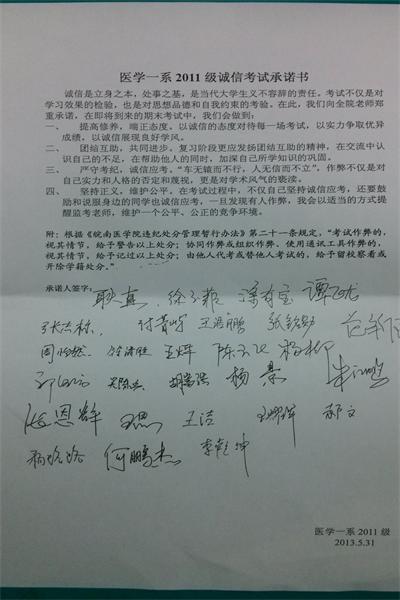 医学一系2011级诚信考试承诺书
诚信是立身之本，处事之基，是当代大学生义不容辞的责任。考试不仅是对
学习效果的检验，也是对思想品德和自我约束的考验。在此，我们向全院老师郑
重承诺，在即将到来的期末考试中，我们会做到：
一、 提高修养，端正态度。以诚信的态度对待每一场考试，以实力争取优异
成绩，以诚信展现良好学风。
二、 团结互助，共同进步。复习阶段更应发扬团结互助的精神，在交流中认
识自己的不足，在帮助他人的同时，加深自己所学知识的巩固。
三、 严守考纪，诚信应考。“车无辕而不行，人无信而不立”，作弊不仅是对
自己实力和人格的否定和蔑视，更是对学术风气的亵渎。
四、 坚持正义，维护公平。在考试过程中，不仅自己坚持诚信应考，还要鼓
励和说服身边的同学也诚信应考，一旦发现有人作弊，我会以适当的方式提
醒监考老师，维护一个公平、公正的竞争环境。
附：根据《皖南医学院违纪处分管理暂行办法》第二十一条规定，“考试作弊的，
视其情节，给予警告以上处分；协同作弊或组织作弊、使用通讯工具作弊的，
视其情节，给予记过以上处分；由他人代考或替他人考试的，给予留校察看或
开除学籍处分。”
承诺人签字：耿真
王浩鹏
王烨 杨柳
杨景
王洁 郝文
何鹏杰 李乾坤
医学一系2011级
2013.5.31